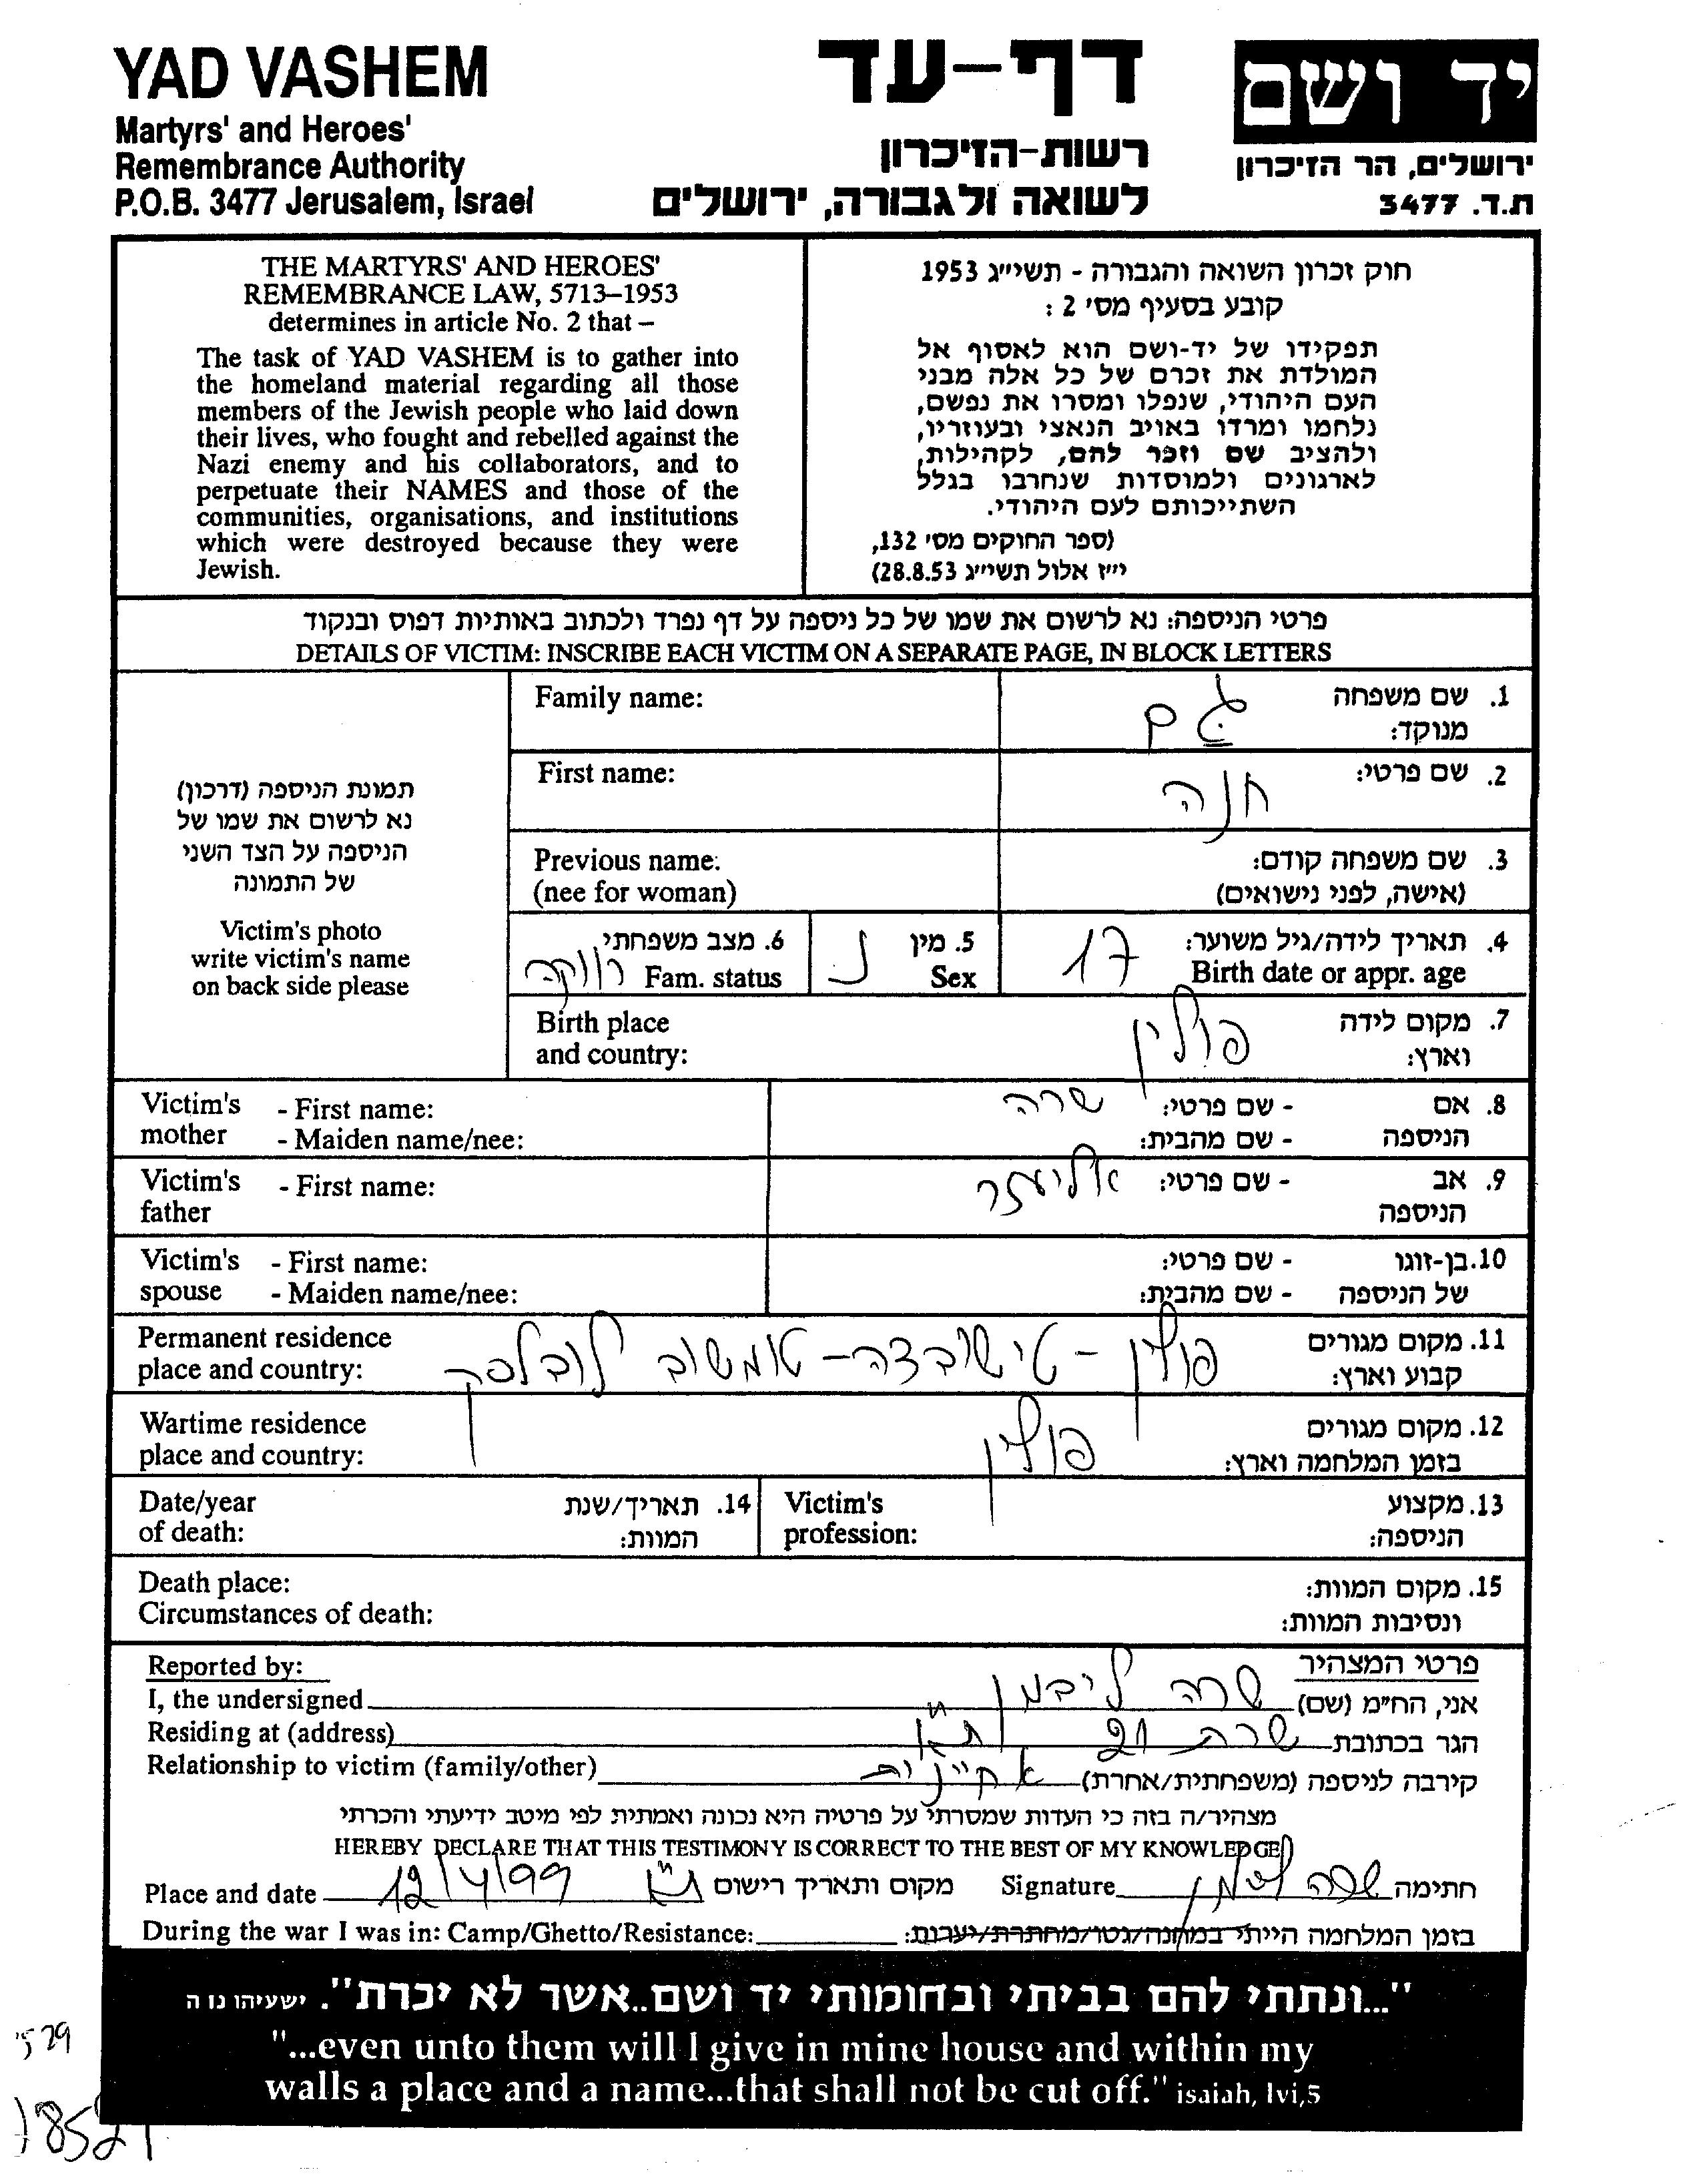 YAD VASHEM
Martyrs' and Heroes'
Remembrance Authority
P.O.B. 3477 Jerusalem, Israel
דף-עד
רשות-הזיכרון
לשואה ולגבורה, ירושלים
יד ושם
ירושלים, הר הזיכרון
ת.ד. 3477
THE MARTYRS' AND HEROES'
REMEMBRANCE LAW, 5713–1953
determines in article No. 2 that –
The task of YAD VASHEM is to gather into
the homeland material regarding all those
members of the Jewish people who laid down
their lives, who fought and rebelled against the
Nazi enemy and his collaborators, and to
perpetuate their NAMES and those of the
communities, organisations, and institutions
which were destroyed because they were
Jewish.
חוק זכרון השואה והגבורה - תשי״ג 1953
קובע בסעיף מס׳ 2 :
תפקידו של יד-ושם הוא לאסוף אל
המולדת את זכרם של כל אלה מבני
העם היהודי, שנפלו ומסרו את נפשם,
נלחמו ומרדו באויב הנאצי ובעוזריו,
ולהציב שם וזכר להם, לקהילות,
לארגונים ולמוסדות שנחרבו בגלל
השתייכותם לעם היהודי.
(ספר החוקים מס׳ 132,
י״ז אלול תשי״ג 28.8.53)
פרטי הניספה: נא לרשום את שמו של כל ניספה על דף נפרד ולכתוב באותיות דפוס ובנקוד
DETAILS OF VICTIM: INSCRIBE EACH VICTIM ON A SEPARATE PAGE, IN BLOCK LETTERS
תמונת הניספה (דרכון)
נא לרשום את שמו של
הניספה על הצד השני
של התמונה
Victim's photo
write victim's name
on back side please
1. שם משפחה
מנוקד:
Family name:
2. שם פרטי: חנה
First name:
3. שם משפחה קודם:
(אישה, לפני נישואים)
Previous name:
(nee for woman)
4. תאריך לידה/גיל משוער: 17
Birth date or appr. age
5. מין נ
Sex
6. מצב משפחתי רווקה
Fam. status
7. מקום לידה
וארץ: פולין
Birth place
and country:
8. אם - שם פרטי: שרה
הניספה - שם מהבית:
Victim's - First name:
mother - Maiden name/nee:
9. אב - שם פרטי: אליעזר
הניספה
Victim's - First name:
father
10. בן-זוגו - שם פרטי:
של הניספה - שם מהבית:
Victim's - First name:
spouse - Maiden name/nee:
11. מקום מגורים
קבוע וארץ: פולין - טישובצה - טומשוב לובלסק
Permanent residence
place and country:
12. מקום מגורים
בזמן המלחמה וארץ: פולין
Wartime residence
place and country:
13. מקצוע
הניספה:
Victim's
profession:
14. תאריך/שנת
המוות:
Date/year
of death:
15. מקום המוות:
ונסיבות המוות:
Death place:
Circumstances of death:
פרטי המצהיר
Reported by:
אני, הח״מ (שם) שרה ליבמן
I, the undersigned
הגר בכתובת שרה 21 ת״א
Residing at (address)
קירבה לניספה (משפחתית/אחרת) אחיינית
Relationship to victim (family/other)
מצהיר/ה בזה כי העדות שמסרתי על פרטיה היא נכונה ואמתית לפי מיטב ידיעתי והכרתי
HEREBY DECLARE THAT THIS TESTIMONY IS CORRECT TO THE BEST OF MY KNOWLEDGE
Place and date 12/4/99 ת״א מקום ותאריך רישום Signature שרה ליבמן חתימה
During the war I was in: Camp/Ghetto/Resistance: בזמן המלחמה הייתי במחנה/גטו/מחתרת/יערות:
"...ונתתי להם בביתי ובחומותי יד ושם..אשר לא יכרת". ישעיהו נו ה
"...even unto them will I give in mine house and within my
walls a place and a name...that shall not be cut off." isaiah, lvi,5